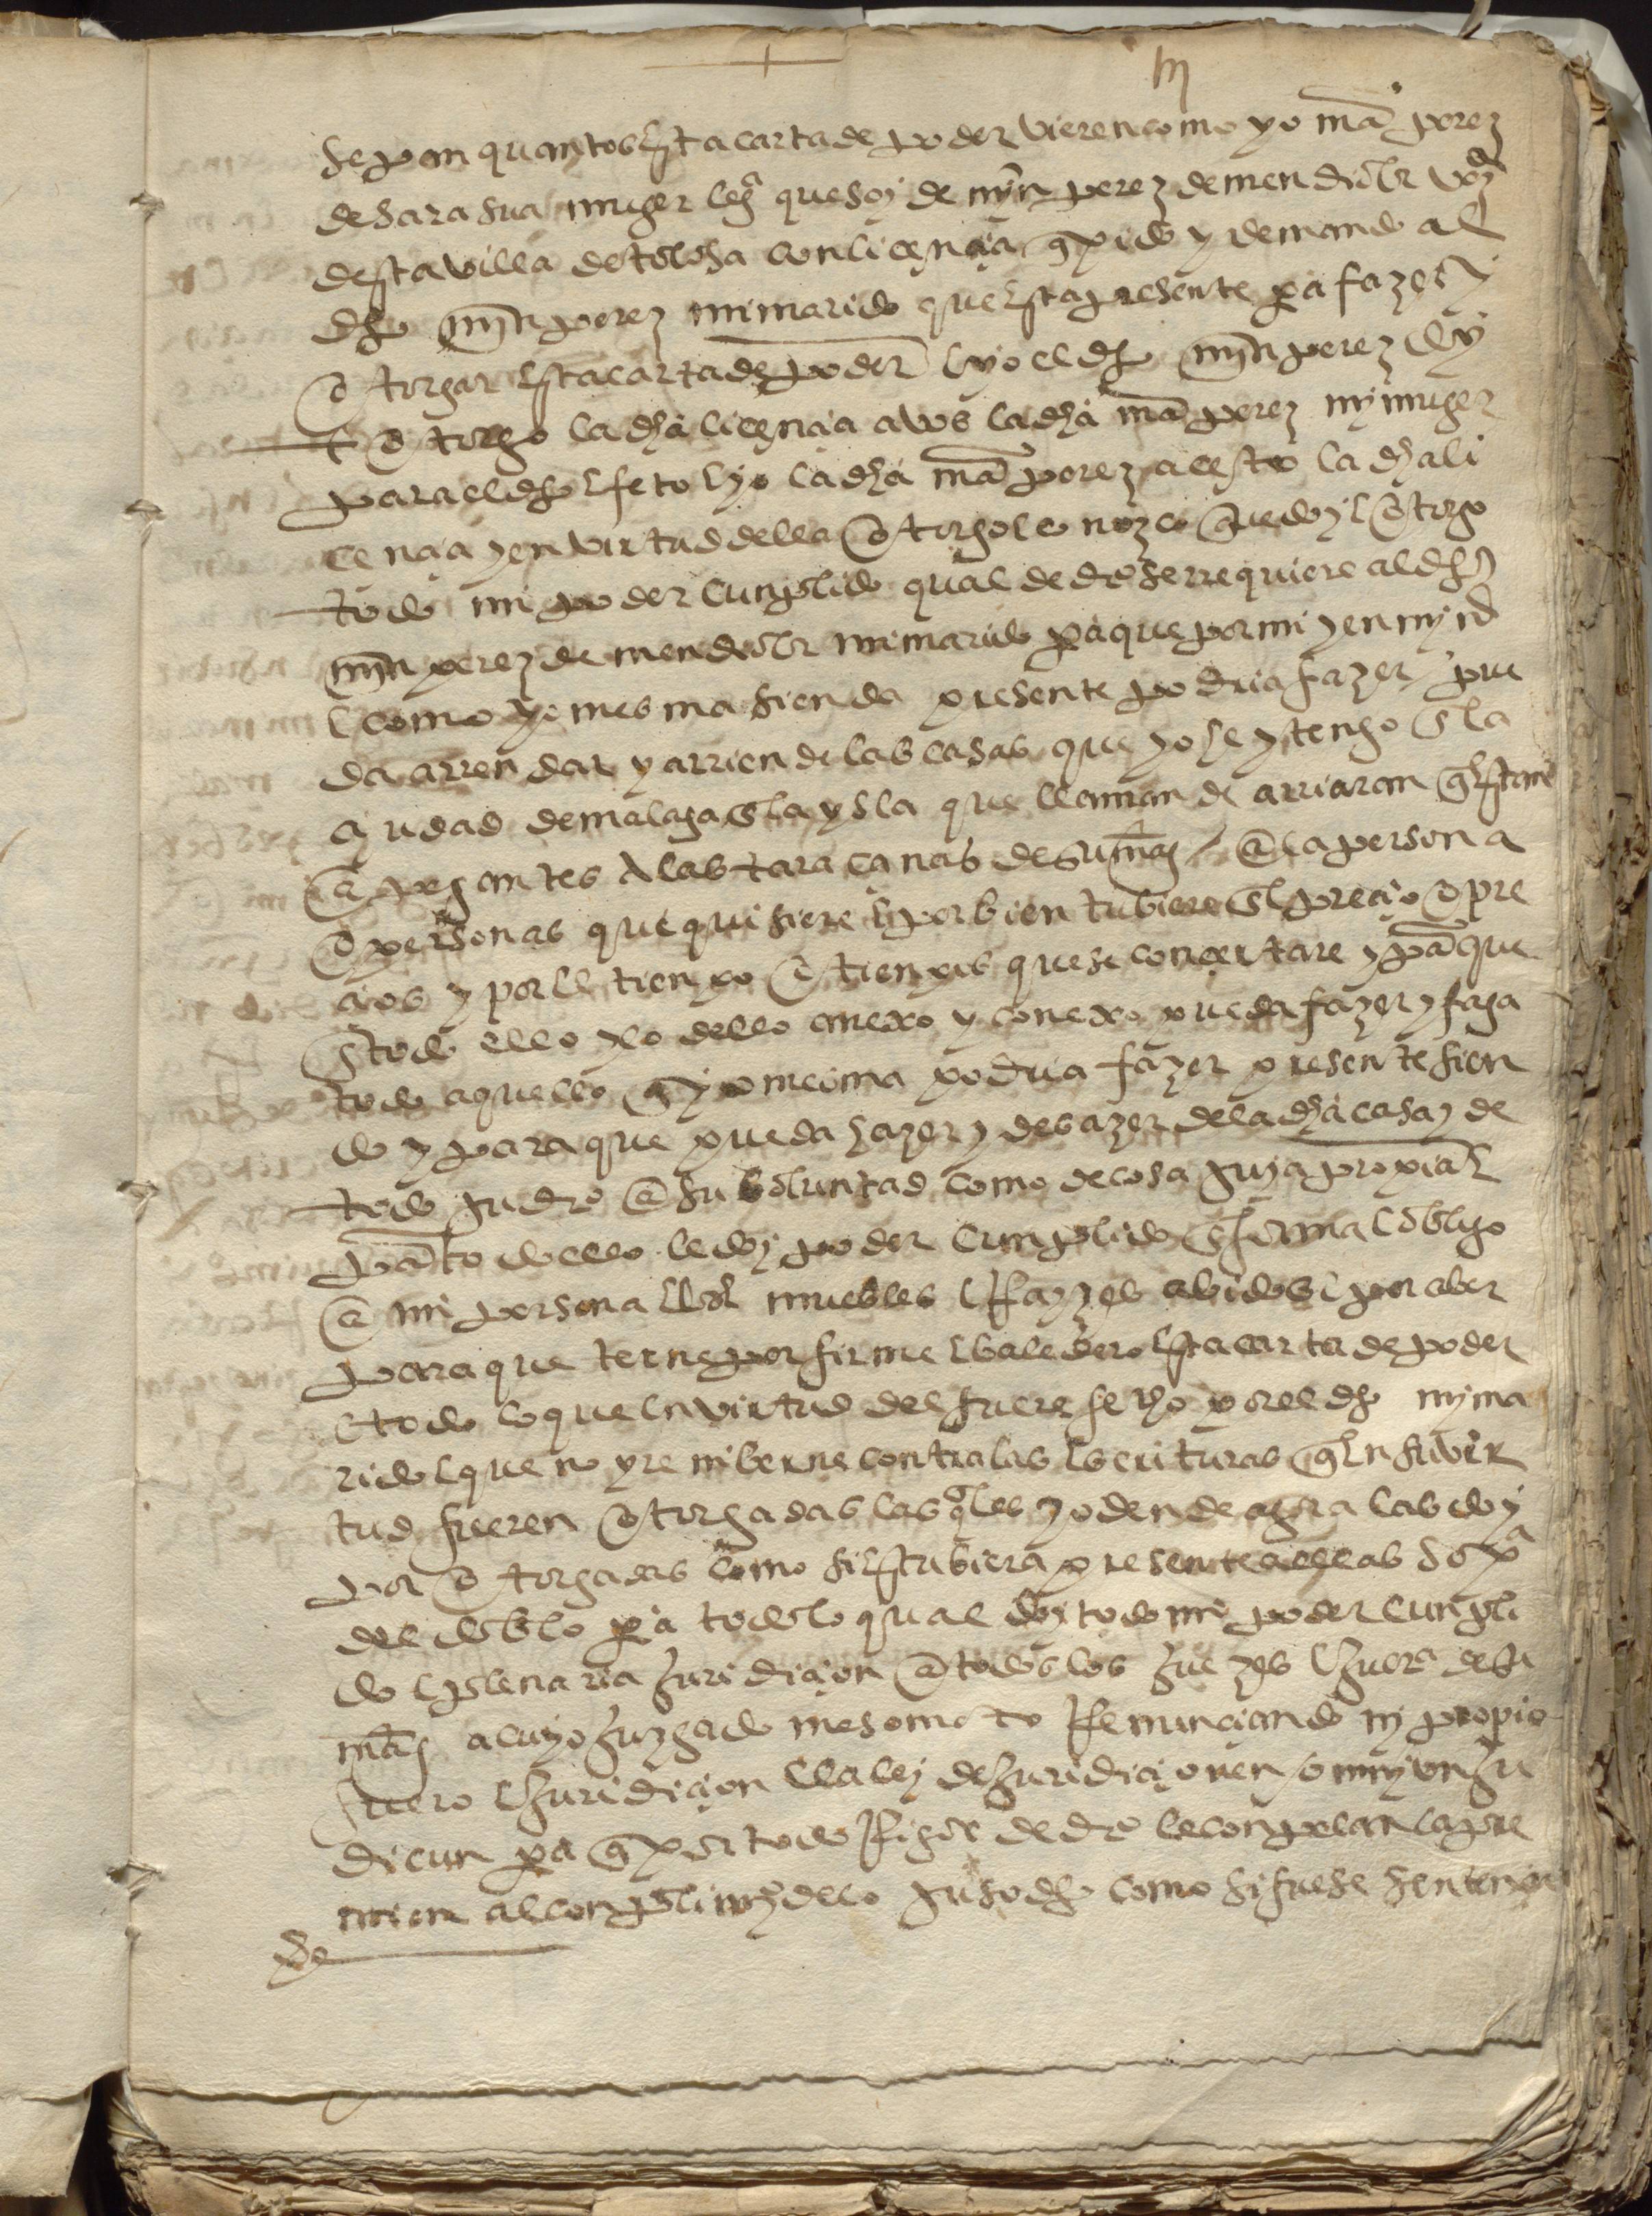 + m
sepan quantos esta carta de poder vieren como yo ma perez
de sarasua muger lega que soy de myn perez de mendiola vzo
desta villa de tolosa con licençia q pido y demando al
dho myn perez mi marido que esta presente pa fazer y
otorgar esta carta de poder e yo el dho myn perez doy
e otorgo la dha liçençia a vos la dha ma perez my muger
para el dho efeto e yo la dha ma perez açesto la dha li
çençia y en virtud della otorgo e conozco que doy e otorgo
todo mi poder cunplido qual de dro se rrequiere al dho
myn perez de mendiola mi marido pa que por mi y en my ne
e como yo mesma sienda presente podria fazer pue
da arrendar y arriende las casas que yo he y tengo en la
çiudad de malaga en la ysla que llaman de arriaran q estan
a pegantes a las taraçanas de su mag a la persona
o personas que quisiere e por bien tubiere en el preçio o pre
çios y por el tienpo o tienpos que se conçertare y pa que
en todo ello y lo dello anexo y conexo pueda fazer y faga
todo aquello q yo mesma podria fazer presente sien
do y para que pueda hazer y desazer de la dha casa y de
todo su dro a su voluntad como de cosa suya propia e
pa todo ello le doy poder cunplido en forma e obligo
a mi persona e bs muebles e rrayzes abidos e por aber
para que terne por firme e baledero esta carta de poder
e todo lo que en virtud del fuere fecho por el dho my ma
rido e que no yre ni berne contra las escrituras q en su vir
tud fueren otorgadas las qles yo dende agora las doy
por otorgadas como si estubiera presente a ellas so pa
del doblo pa todo lo qual doy todo mi poder cunpli
do e plenaria juridiçion a todos los juezes e juras de su
mag a cuyo juzgado me someto rrenunçiando my propio
fuero e juridiçion e la ley de juridiçionen omnyun ju
dicun pa q por todo rrigor de dro le conpelan e apre
mien al conplimyo de lo susodho como si fuese sentençia
de